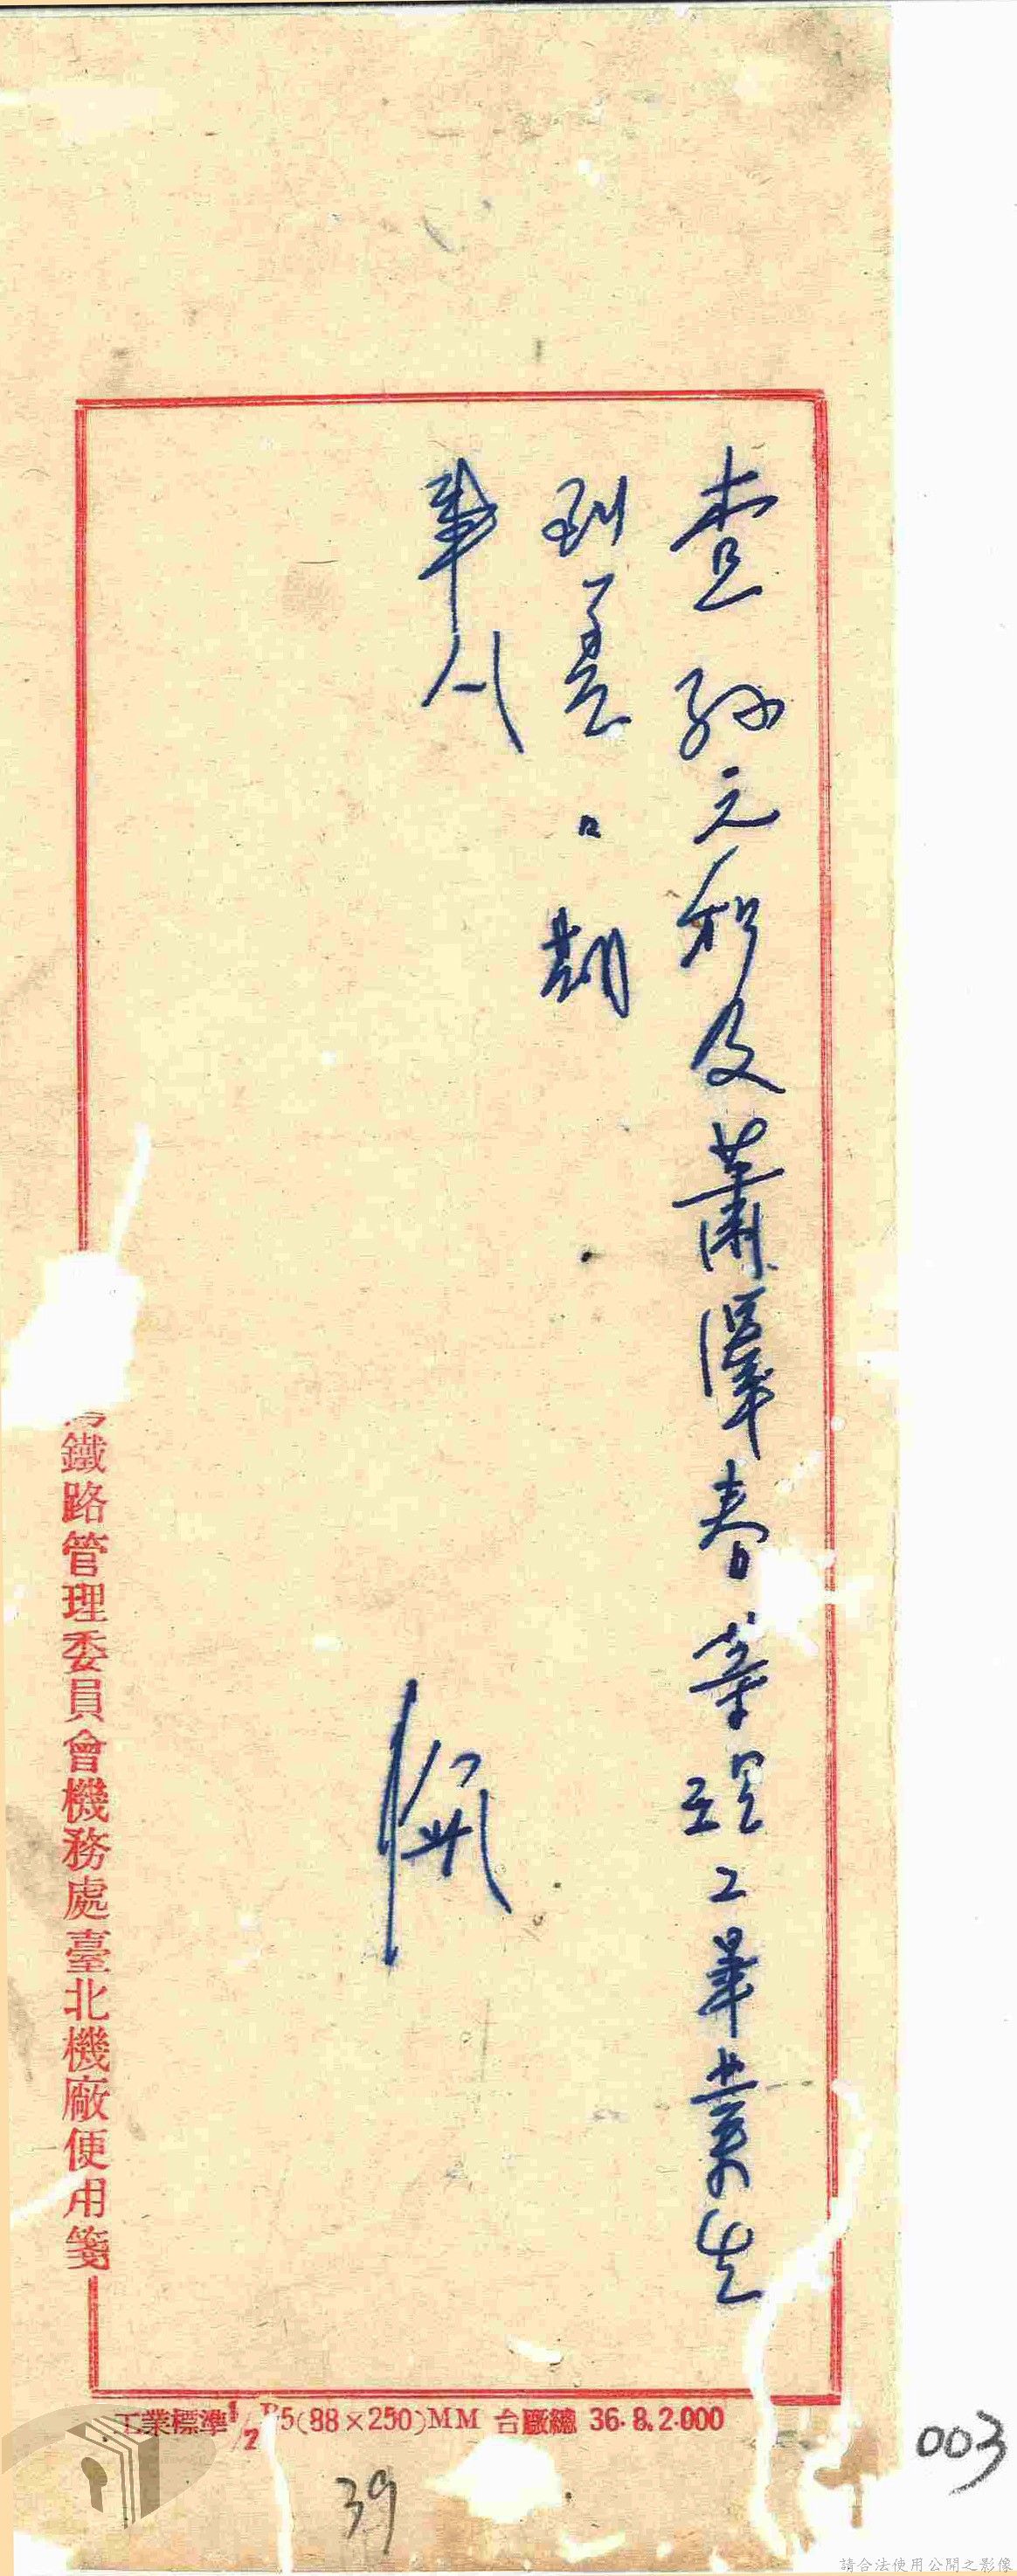 查孫元和及蕭澤春等理工畢業生
到差日期
事人
鐵路管理委員會機務處臺北機廠使用箋
工業標準1/2 B5(88×250)MM 台廠總 36.8.2.000
39
003
請合法使用公開之影像